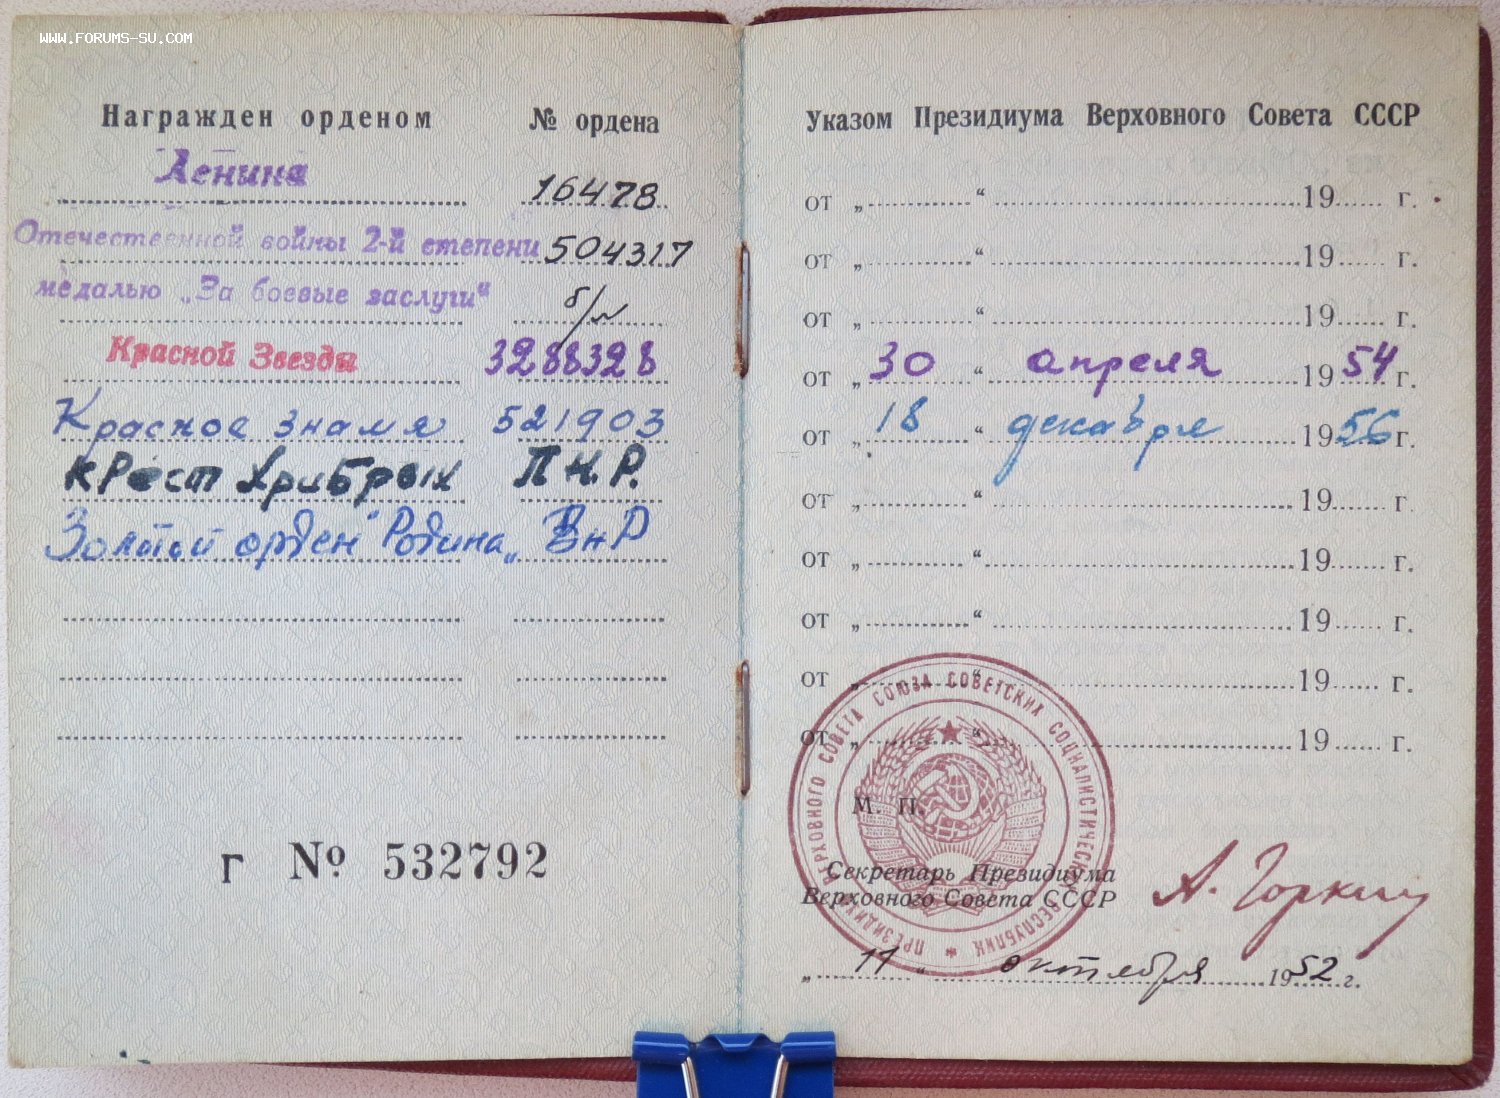 www.forums-su.com
Награжден орденом № ордена
Ленина 16478
Отечественной войны 2-й степени 504317
медалью „За боевые заслуги“ б/н
Красной Звезды 3288328
Красное знамя 521903
крест Хрибрых П.Н.Р.
Золотой орден "Родина„ ВнР
Г № 532792
Указом Президиума Верховного Совета СССР
от „ “ 19 г.
от „ “ 19 г.
от „ “ 19 г.
от „ 30 “ апреля 19 54 г.
от „ 18 “ декабря 19 56 г.
от „ “ 19 г.
от „ “ 19 г.
от „ “ 19 г.
от „ “ 19 г.
от „ “ 19 г.
ПРЕЗИДИУМ ВЕРХОВНОГО СОВЕТА СОЮЗА СОВЕТСКИХ СОЦИАЛИСТИЧЕСКИХ РЕСПУБЛИК
М. П.
Секретарь Президиума
Верховного Совета СССР
А. Горкин
„ 11 “ октября 19 52 г.